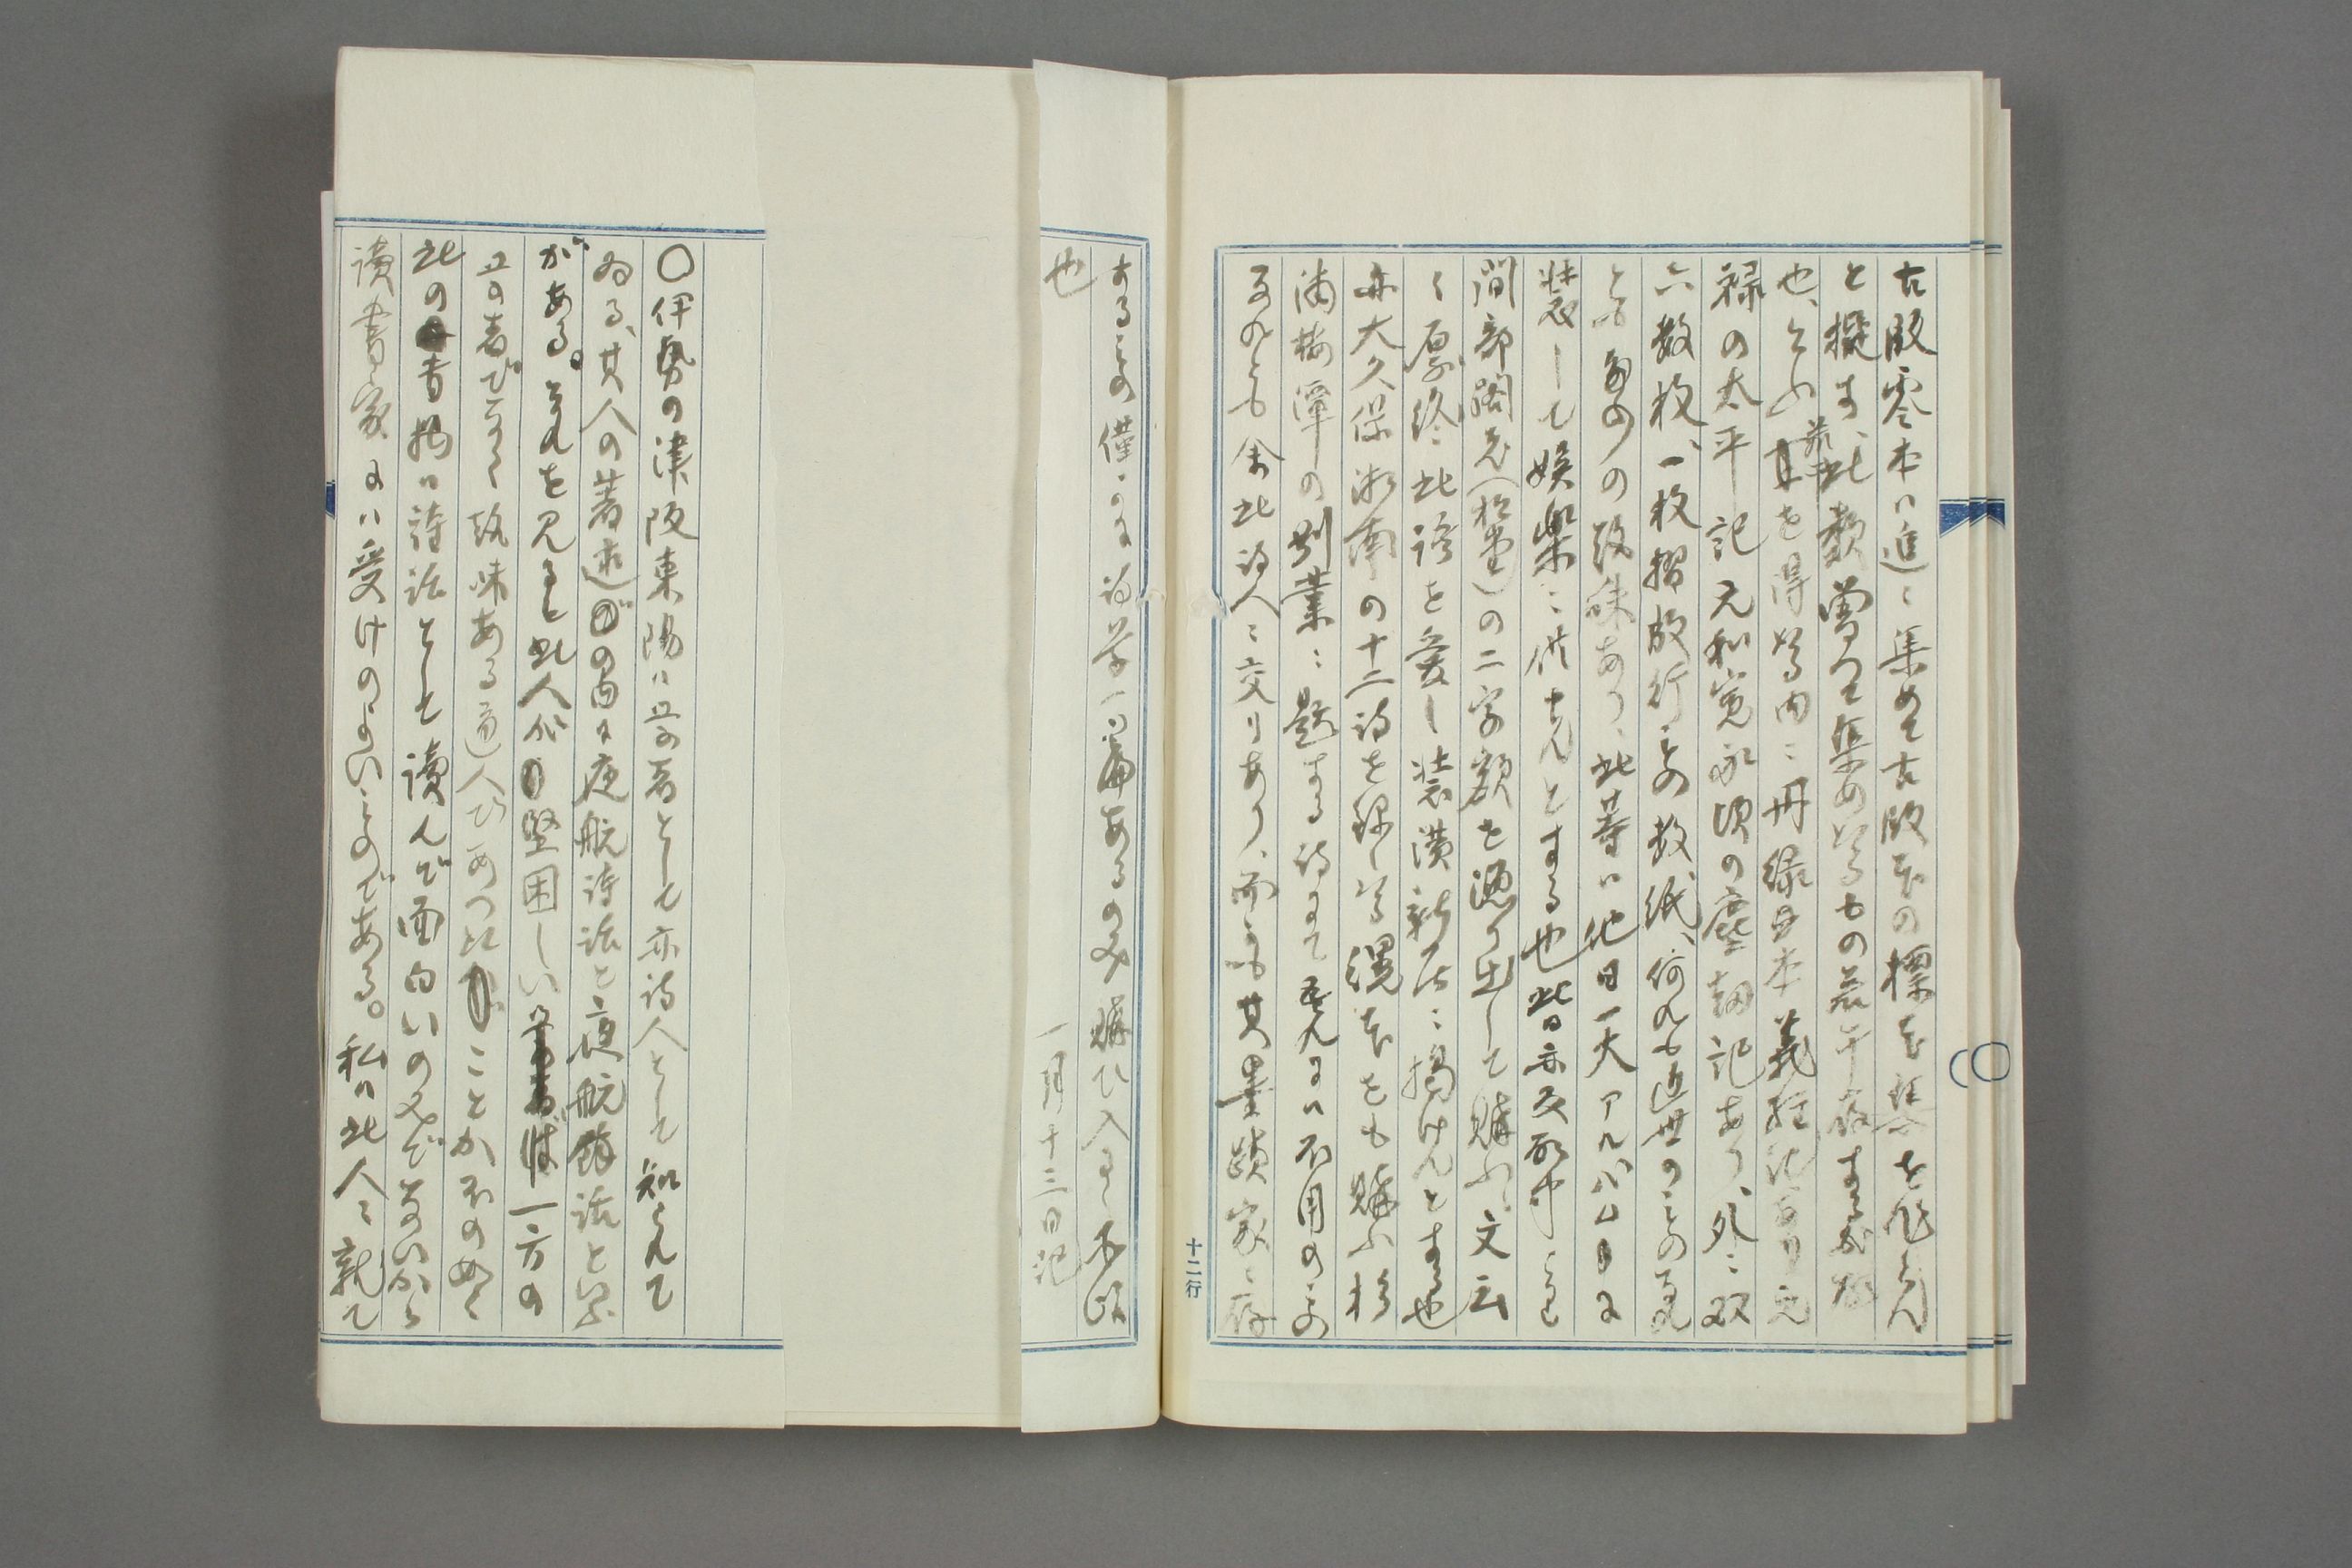 古版零本は追々集めて古版本の標本集を作らん
と擬す、此数曽つて集め得るもの若干存するが
也、を得る内に丹緑本義経記あり元
禄の太平記元和寛永頃の塵劫記あり、外に双
六数枚、一枚摺放行もの数紙、何れも近世のもの
とも多少の趣味あり、此等は他日一大アルバムに
装して娯楽に供せんとする也此日亦文部省
間部閣老(松堂)の二字額を懇り出して購ふ、文云
く、余此語を愛し装潢新居に掲けんとする也
亦大久保湘南の十二詩を録しある縄本をも購ふ杉
浦梅潭の別業に題する詩にて吾れには不用のもの
なれども余此詩人に交りあり、而かも其墨蹟家に存
するもの僅かに詩学一篇あるのみ購ひ入る
也
一月十三日記
〇伊勢の津阪東陽は学者として亦詩人として知られて
ゐる、其人の著述の内に夜航詩話と夜航余話と云ふ
がある。それを見ると此人が堅困しい一方の
学者でなく趣味ある通人であつたことがほのめく
此の書物は詩話として読んで面白いのみでないから
讀書家には受けのよいものである。私は此人に就て
十二行